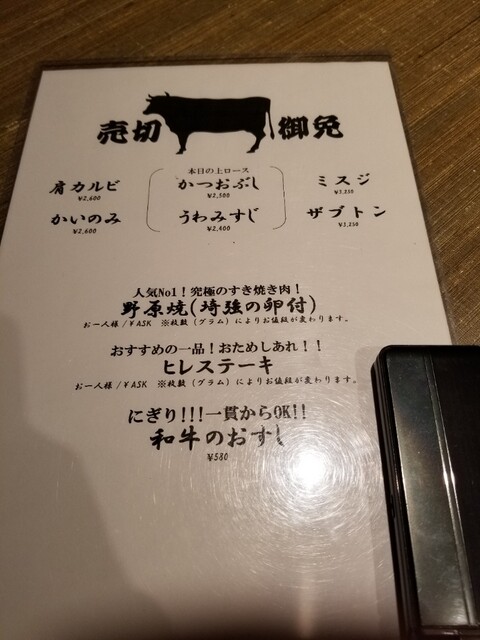 売切 御免
本日の上ロース
肩カルビ かつおぶし ミスジ
¥2,600 ¥2,500 ¥3,250
かいのみ うわみすじ ザブトン
¥2,600 ¥2,400 ¥3,250
人気No1！究極のすき焼き肉！
野原焼(埼強の卵付)
お一人様/¥ASK ※枚数（グラム）によりお値段が変わります。
おすすめの一品！おためしあれ！！
ヒレステーキ
お一人様/¥ASK ※枚数（グラム）によりお値段が変わります。
にぎり!!!一貫からOK!!
和牛のおすし
¥580